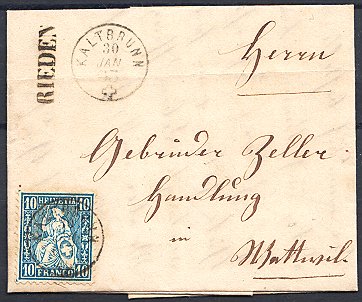 RIEDEN
KALTBRUNN
30
JAN
Herrn
Gebrüder Zeller
Handlung
in
Wattwil
HELVETIA
10 10
10 FRANCO 10